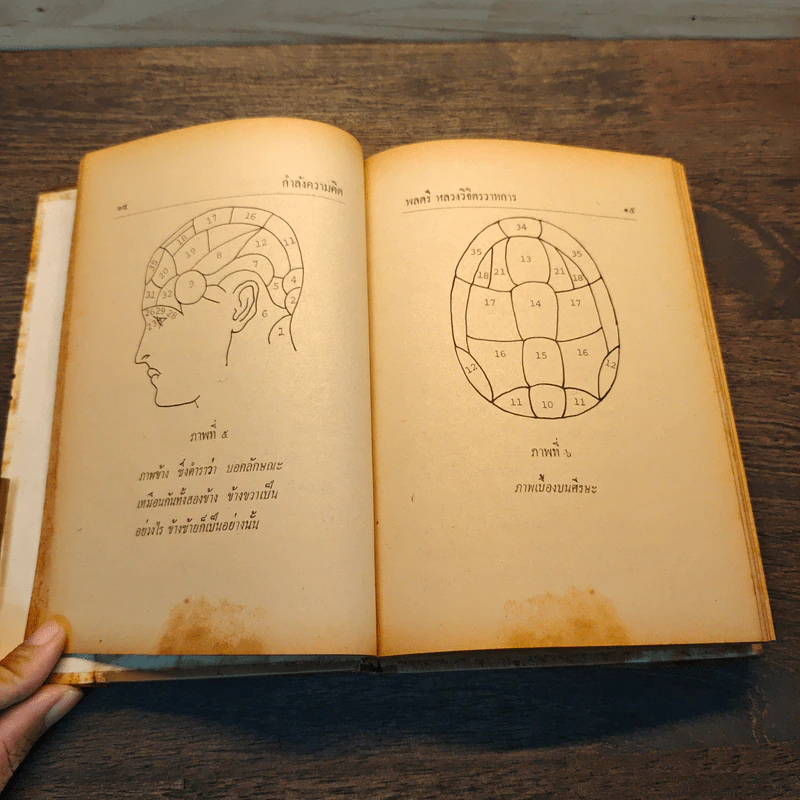 กำลังความคิด
๑๔
17 16
18 19 8 12 11
35 20 7
31 32 9 5 4
2
26 29 28 6
1
ภาพที่ ๕
ภาพข้าง ซึ่งตำราว่า บอกลักษณะ
เหมือนกันทั้งสองข้าง ข้างขวาเป็น
อย่างไร ข้างซ้ายก็เป็นอย่างนั้น
พลตรี หลวงวิจิตรวาทการ
๑๕
34
35 13 35
18 21 21 18
17 14 17
16 15 16
12 12
11 10 11
ภาพที่ ๖
ภาพเบื้องบนศีรษะ